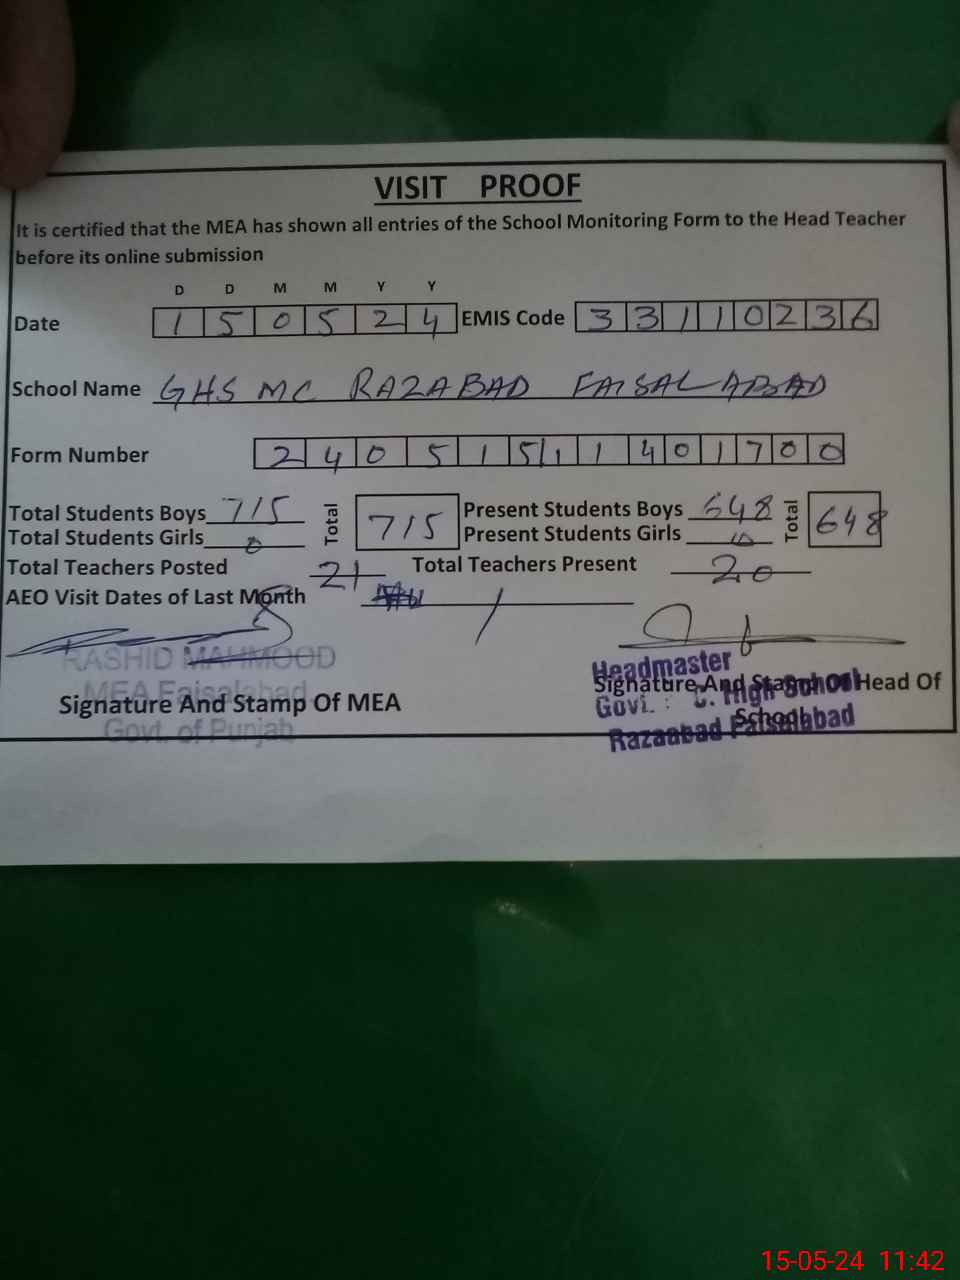 VISIT PROOF
It is certified that the MEA has shown all entries of the School Monitoring Form to the Head Teacher
before its online submission
D D M M Y Y
Date 1 5 0 5 2 4 EMIS Code 3 3 1 1 0 2 3 6
School Name GHS MC RAZABAD FAISALABAD
Form Number 2 4 0 5 1 5 1 1 4 0 1 7 0 0
Total Students Boys 715 Total 715 Present Students Boys 648 Total 648
Total Students Girls 0 Present Students Girls
Total Teachers Posted 21 Total Teachers Present 20
AEO Visit Dates of Last Month
RASHID MAHMOOD
MEA Faisalabad
Govt. of Punjab
Signature And Stamp Of MEA
Headmaster
Govt. High School
Razaabad Faisalabad
Signature And Stamp Of Head Of
School
15-05-24 11:42